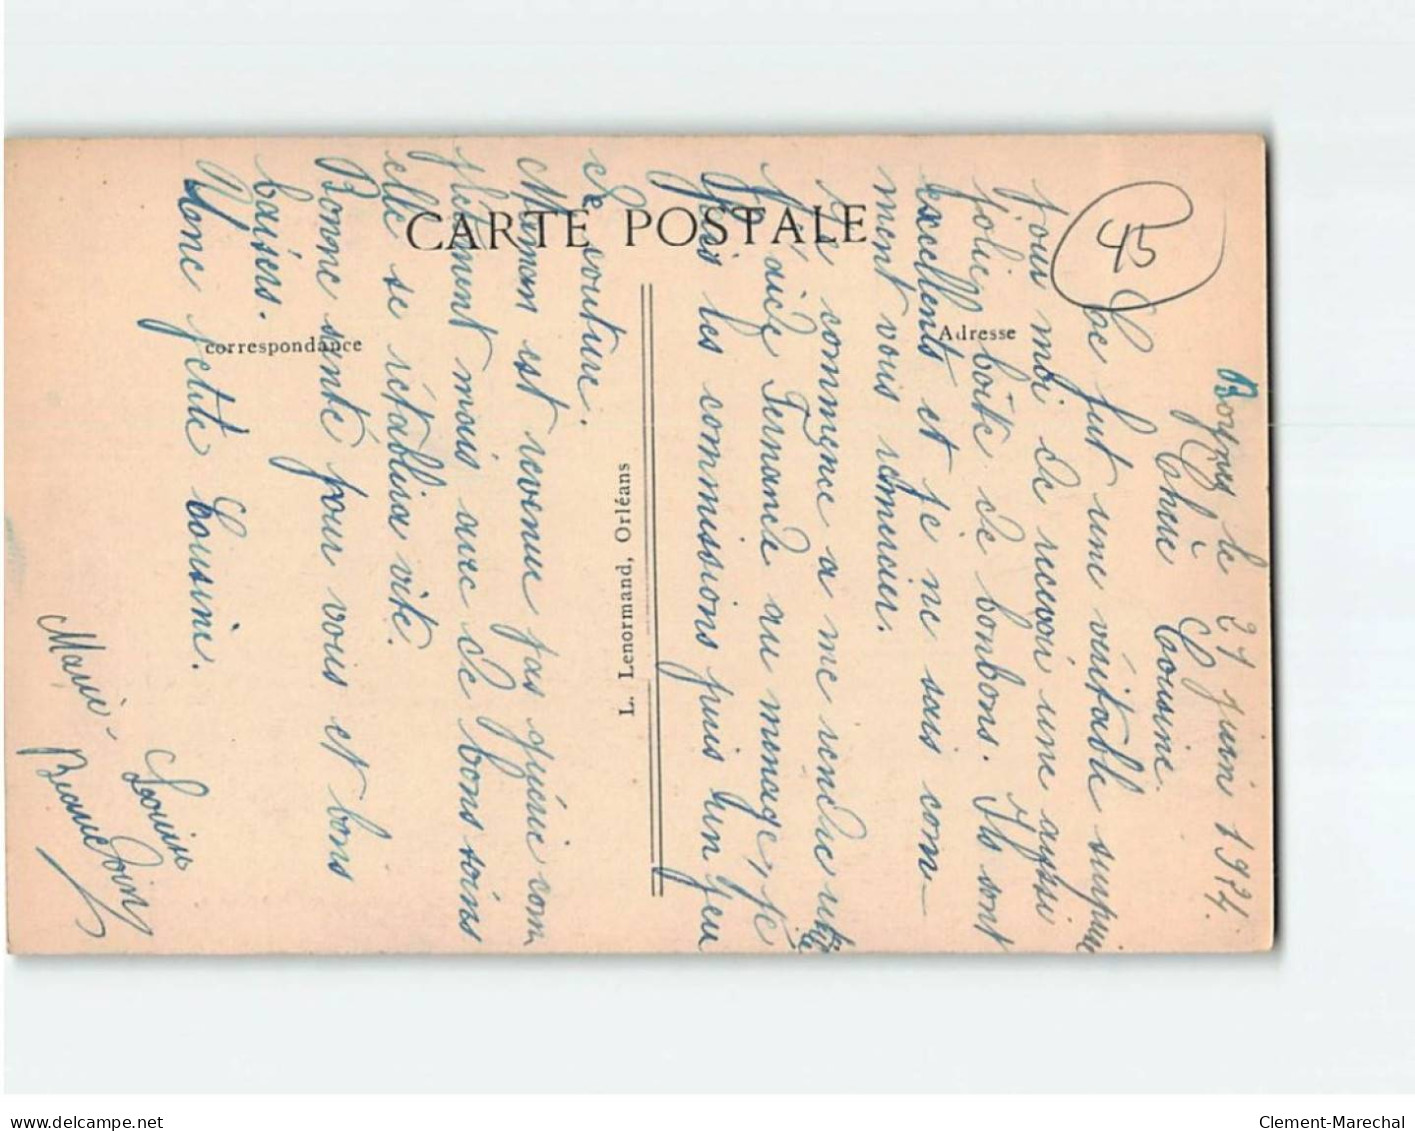 CARTE POSTALE
correspondance
Adresse
L. Lenormand, Orléans
45
Boynes le 21 juin 1934.
Chère Cousine.
Ce fut une véritable surprise
pour moi de recevoir une aussi
jolie boîte de bonbons. Ils sont
excellents et je ne sais com-
ment vous remercier.
Je commence a me rendre utile
J'aide Fernande au ménage, je
fais les commissions puis un peu
de couture.
Maman est revenue pas guérie com
plètement mais avec de bons soins
elle se rétablira vite.
Bonne santé pour vous et bons
baisers.
Votre petite Cousine.
Louise
Marie
delcampe.net
Clement-Marechal